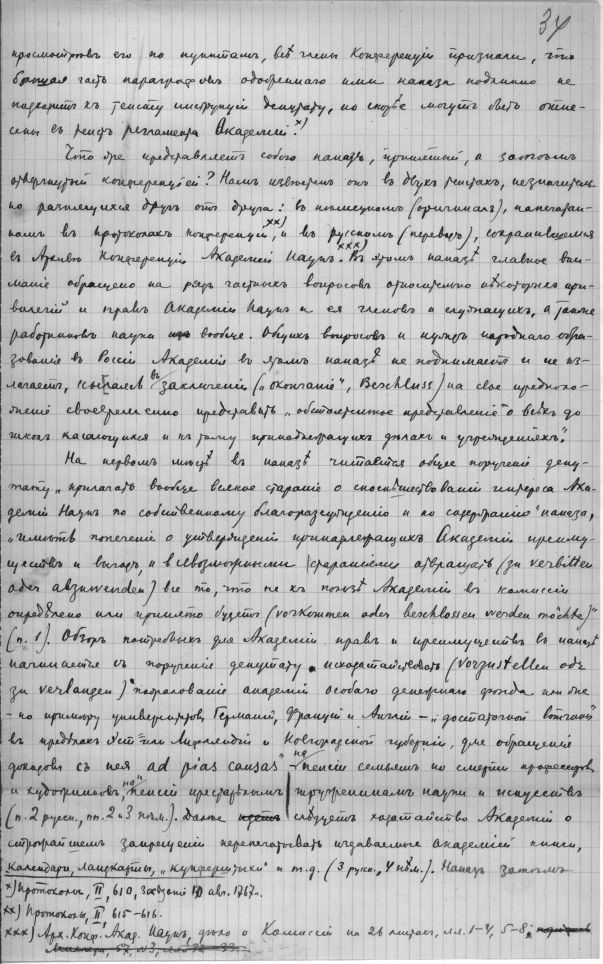 34
просмотрѣвъ его по пунктамъ, всѣ члены Конференціи признали, что
большая часть параграфовъ одобреннаго ими наказа подлинно не
надлежитъ къ тексту инструкціи депутату, но скорѣе могутъ быть отне-
сены въ регламента Академіи. х)
Что же представляетъ собою наказъ, принятый, а затѣмъ
отвергнутый конференціей? Намъ извѣстенъ онъ въ двухъ текстахъ, незначитель-
но разнящихся другъ отъ друга: въ нѣмецкомъ (оригиналъ), напечатан-
номъ въ протоколахъ конференціи, хх) и въ русскомъ (переводъ), сохранившемся
въ Архивѣ Конференціи Академіи Наукъ. ххх) Въ этомъ наказѣ главное вни-
маніе обращено на рядъ частныхъ вопросовъ относительно нѣкоторыхъ при-
вилегій и правъ Академіи Наукъ и ея членовъ и служащихъ, а также
работниковъ науки вообще. Общихъ вопросовъ и нуждъ народнаго обра-
зованія въ Россіи Академія въ этомъ наказѣ не поднимаетъ и не из-
лагаетъ, ссылаясь въ заключеніи („окончаніе", Beschluss) на свое предполо-
женіе своевременно представить „обстоятельное представленіе о всѣхъ до
школъ касающихся и къ тому принадлежащихъ дѣлахъ и учрежденіяхъ".
На первомъ мѣстѣ въ наказѣ читается общее порученіе депу-
тату „прилагать вообще всякое стараніе о споспѣшествованіи интереса Ака-
деміи Наукъ по собственному благоразсужденію и по содержанію" наказа,
„имѣть попеченіе о утвержденіи принадлежащихъ Академіи преиму-
ществъ и выгодъ, и всевозможными стараніями отвращать (zu verbitten
oder abzuwenden) все то, что не къ пользѣ Академіи въ комиссіи
опредѣлено или принято будетъ (vorkommen oder beschlossen werden möchte)"
(п. 1). Обзоръ потребныхъ для Академіи правъ и преимуществъ въ наказѣ
начинается съ порученія депутату исходатайствовать (vorzustellen oder
zu verlangen) "пожалованіе академіи особаго денежнаго фонда или же
- по примѣру университетовъ Германіи, Франціи и Англіи - „достаточной вотчины"
въ предѣлахъ Эст- или Лифляндіи и Новгородской губерніи, для обращенія
доходовъ съ нея ad pias causas" - на пенсіи семьямъ по смерти профессоровъ
и художниковъ, на пенсіи престарѣлымъ труженикамъ науки и искусствъ
(п. 2 русск., пп. 2 и 3 нѣм.). Далѣе слѣдуетъ ходатайство Академіи о
строжайшемъ запрещеніи перепечатывать издаваемыя академіей книги,
календари, ландкарты, „кунферштыхи" и т.д. (3 русск., 4 нѣм.). Наказъ затѣмъ
х) Протоколы, II, 610, засѣданіе 10 авг. 1767.
хх) Протоколы, II, 615-616.
ххх) Арх. Конф. Акад. Наукъ, дѣло о Комиссіи на 26 листахъ, лл. 1-4, 5-8;